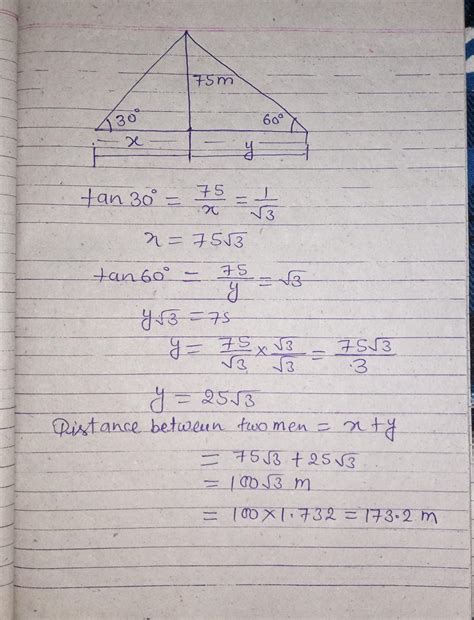 75m
30° 60°
x y
tan 30° = 75/x = 1/√3
x = 75√3
tan 60° = 75/y = √3
y√3 = 75
y = 75/√3 × √3/√3 = 75√3/3
y = 25√3
Distance between two men = x + y
= 75√3 + 25√3
= 100√3 m
= 100 × 1.732 = 173.2 m